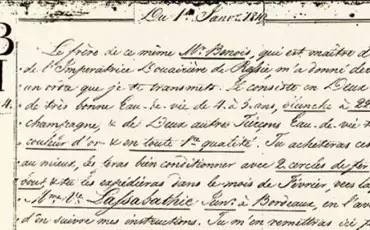 Du 1er Janvr. 18
B
4.
Le frère de ce même Mr. Benois, qui est maître d
de l'Impératrice Douairière de Russie m'a donné de
un ordre que je te transmets. Il consiste en Deux
de très bonne Eau-de-vie de 4 à 5 ans, blanche à 22
champagne, & de Deux autres Tierçons Eau-de-vie
couleur d'or & en toute 1re qualité. Tu achèteras ces
au mieux, les feras bien conditionner avec 2 cercles de fer
bout & tu les expédieras dans le mois de Février, vers la
Mme. Ve. Junr. à Bordeaux, en l'av
d'en suivre mes instructions. Tu m'en remettras ici